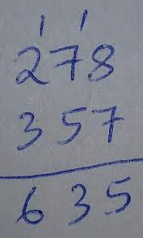 1 1
278
357
635